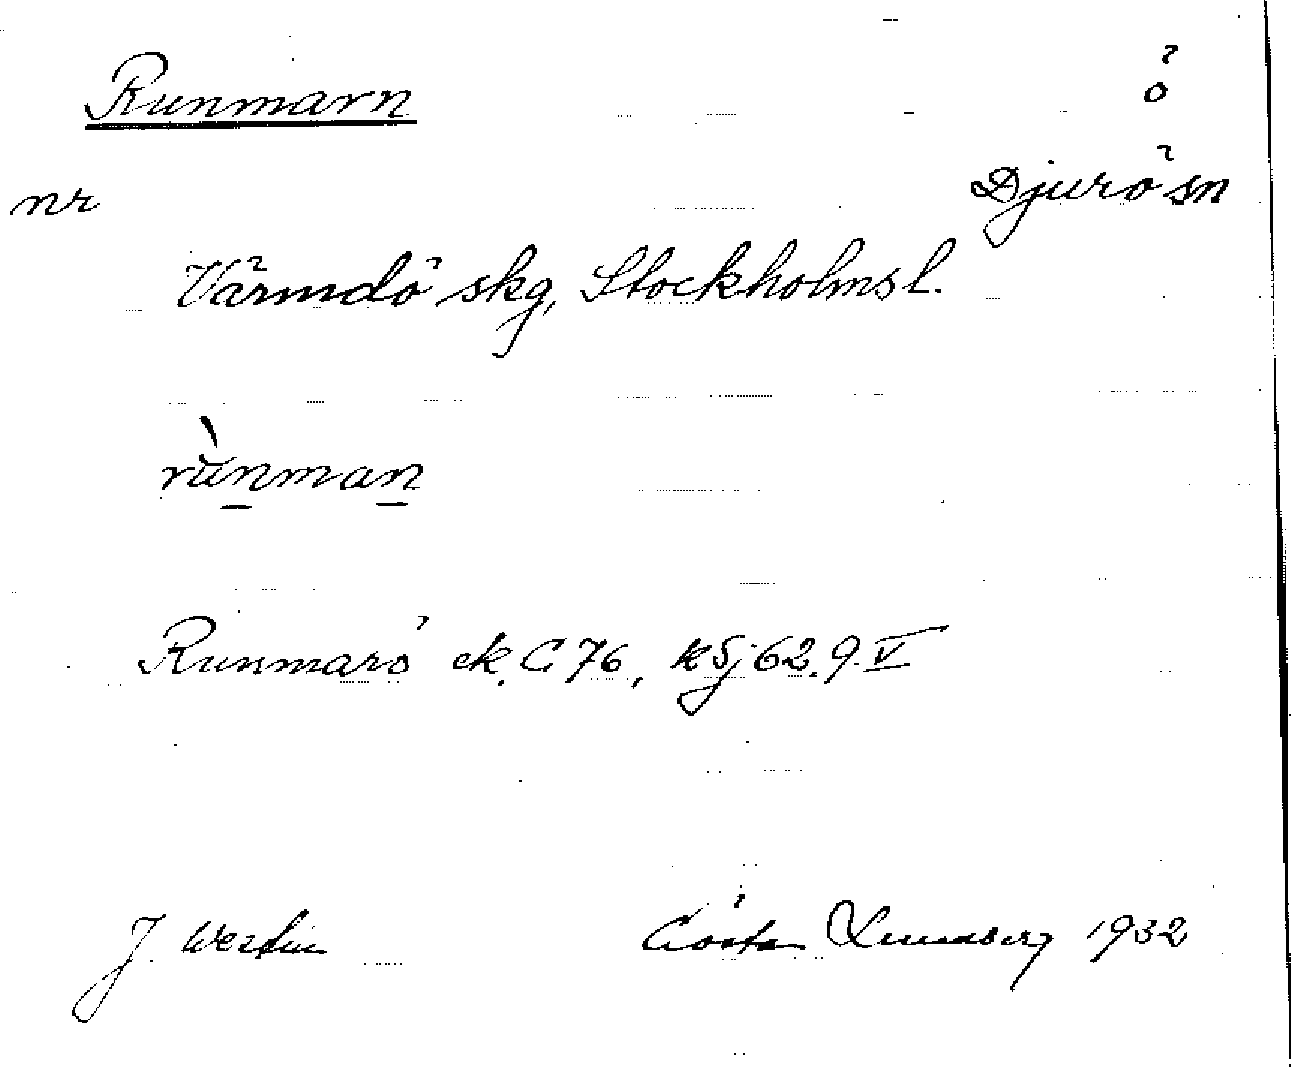 Runmarn ö
nr Djurö sn
Värmdö skg, Stockholms l.
rùnman
Runmarö ek. C 76, kSj 62.9.V
J. Westin Gösta Lundberg 1932